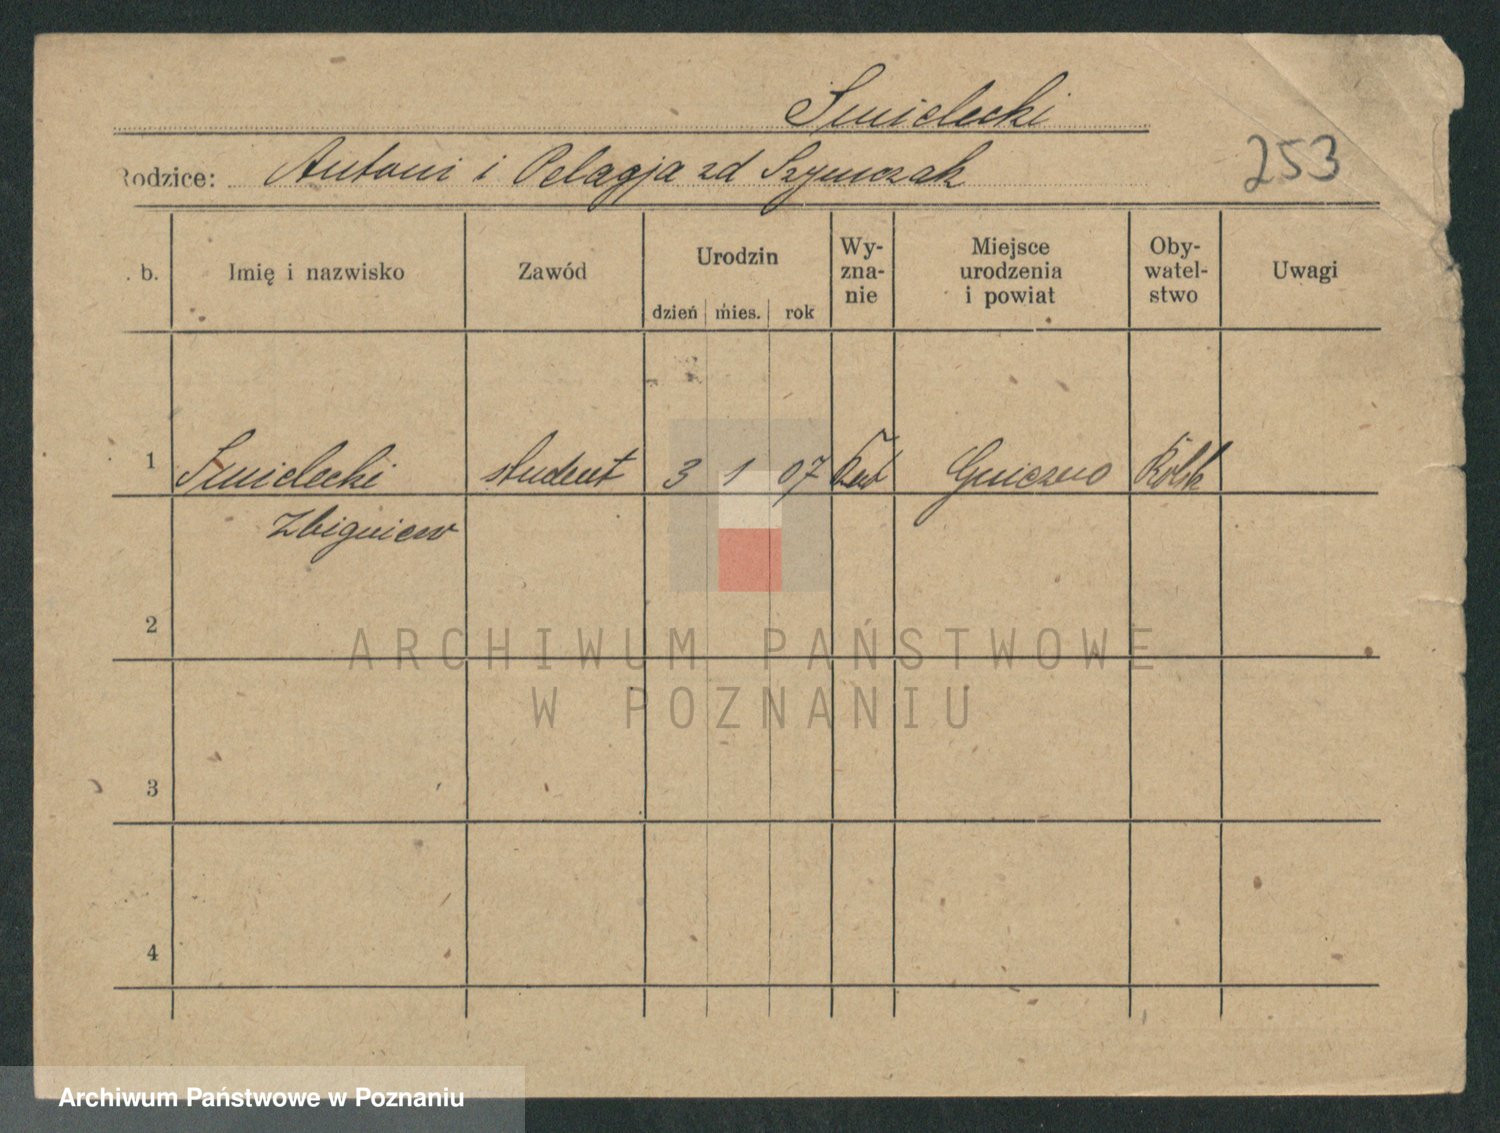 Smielecki
Rodzice: Antoni i Pelagja zd Szymczak
253
. b.
Imię i nazwisko
Zawód
Urodzin
dzień mies. rok
Wy-
zna-
nie
Miejsce
urodzenia
i powiat
Oby-
watel-
stwo
Uwagi
1 Smielecki student 3 1 07 Gniezno
Zbigniew
2
ARCHIWUM PAŃSTWOWE
W POZNANIU
3
4
Archiwum Państwowe w Poznaniu